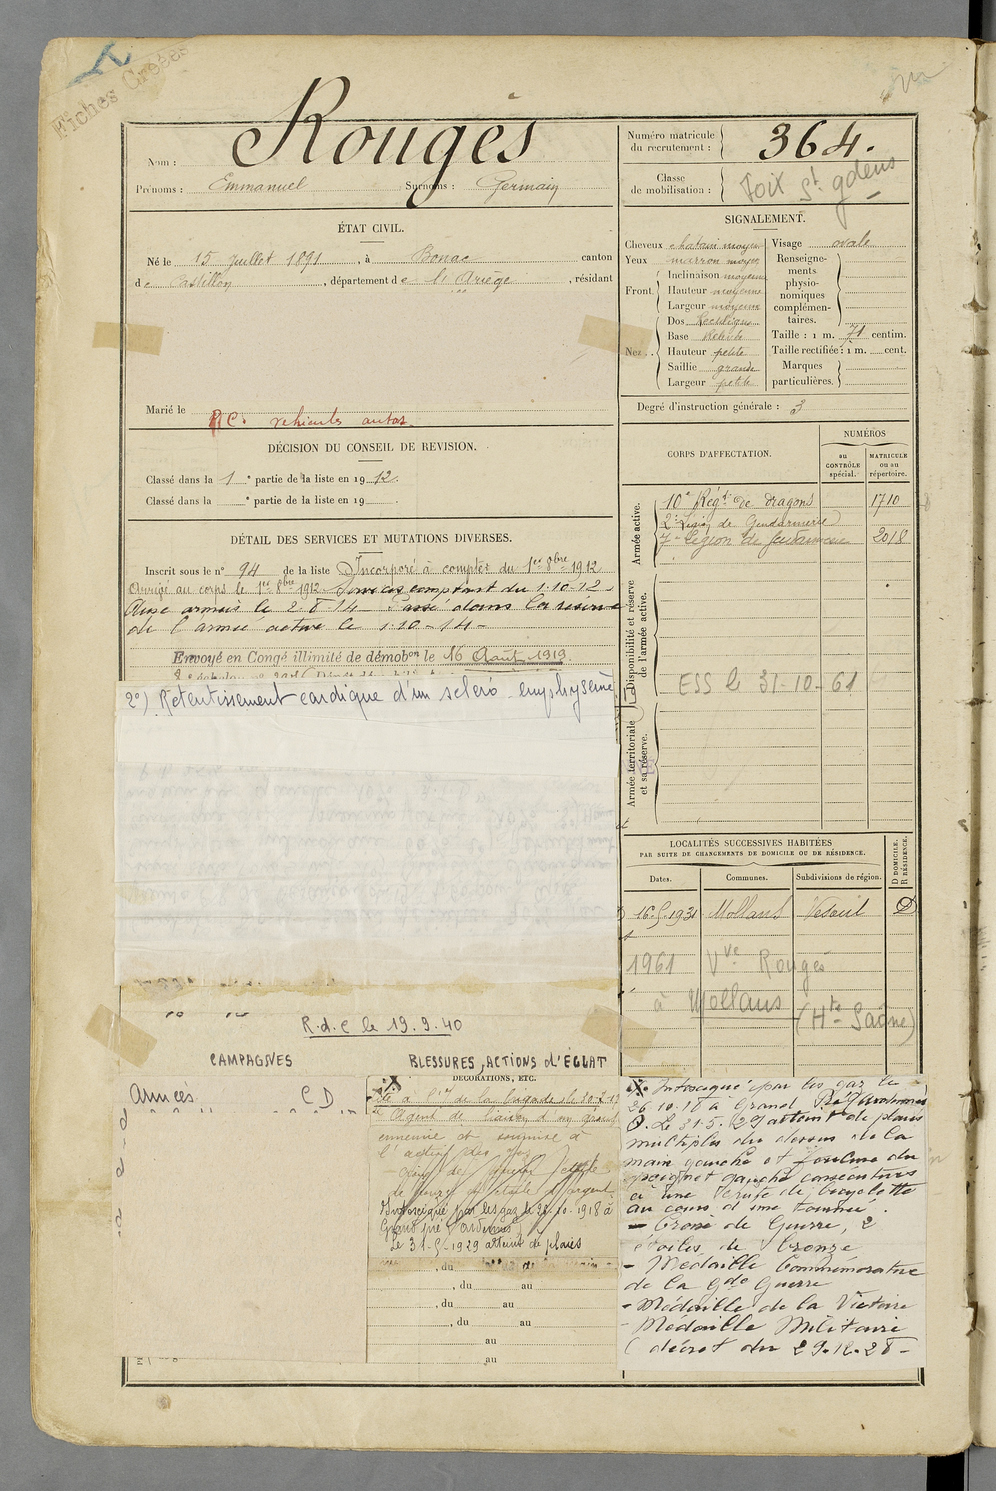 Fiches Croées
Nom : Rougés
Prénoms : Emmanuel Surnoms : Germain
Numéro matricule du recrutement : 364.
Classe de mobilisation :
Toit St gdens
ÉTAT CIVIL.
Né le 15 Juillet 1891, à Bonac canton
de Castillon, département de l'Ariège, résidant
Marié le
R.C. vehicules autos
DÉCISION DU CONSEIL DE REVISION.
Classé dans la 1e partie de la liste en 1912.
Classé dans la e partie de la liste en 19
DÉTAIL DES SERVICES ET MUTATIONS DIVERSES.
Inscrit sous le n° 94 de la liste Incorporé à compter du 1er 8bre 1912
Arrivé au corps le 1er 8bre 1912. Services comptant du 1-10-12.
Aux armées le 2-8-14. Passé dans la réserve
de l'armée active le 1-10-14-
Envoyé en Congé illimité de démobon le 16 Août 1919
2°) Retentissement cardique d'un scléro-emphysème
R.d.C le 19.9.40
CAMPAGNES
Annces C D
BLESSURES, ACTIONS d'ECLAT
DÉCORATIONS, ETC.
Cité à l'O de la brigade le 10-
Agent de liaison d'un
ennemie et soumise à
l'action des gaz
Croix de guerre
de guerre étoile d'argent
Intoxiqué par les gaz le 26-10-1918 à
Grand pré Ardennes
Le 31-5-1929 atteint de plaies
, du
, du au
, du au
, du au
au
au
SIGNALEMENT.
Cheveux chatain moyen
Yeux marron moyen
Front. Inclinaison moyenne
Hauteur moyenne
Largeur moyenne
Nez. Dos Rectiligne
Base Relevée
Hauteur petite
Saillie grande
Largeur petite
Visage ovale
Renseignements physionomiques complémentaires.
Taille : 1 m. 71 centim.
Taille rectifiée : 1 m. cent.
Marques particulières.
Degré d'instruction générale : 3
CORPS D'AFFECTATION.
NUMÉROS
au CONTRÔLE spécial.
MATRICULE ou au répertoire.
Armée active.
10e Régt de dragons 1710
2e Légion de Gendarmerie
7e Légion de Gendarmerie 2018
Disponibilité et réserve de l'armée active.
ESS le 31-10-61
Armée territoriale et sa réserve.
LOCALITÉS SUCCESSIVES HABITÉES
PAR SUITE DE CHANGEMENTS DE DOMICILE OU DE RÉSIDENCE.
Dates. Communes. Subdivisions de région. D DOMICILE. R RÉSIDENCE.
16-5-1931 Mollans Vesoul D
1961 Vve Rougés
à Mollans (Hte Saône)
Intoxiqué par les gaz le
26.10.18 à Grand Pré (Ardennes
. Le 31.5.29 atteint de plaies
multiples du dessus de la
main gauche et foulure du
poignet gauche consécutives
à une chute de bicyclette
au cours d'une tournée.
- Croix de Guerre, 2
étoiles de bronze
- Médaille Commémorative
de la Gde Guerre
- Médaille de la Victoire
- Médaille Militaire
(décret du 29.12.28-